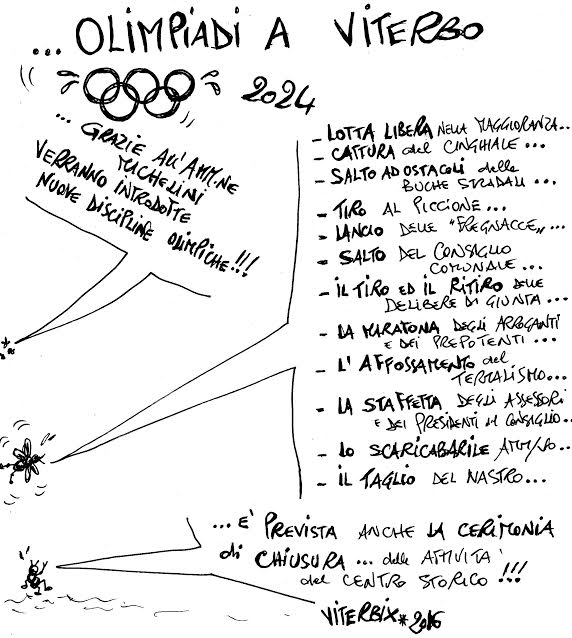 ...OLIMPIADI A VITERBO
2024
... GRAZIE ALL'AMM.NE
MICHELINI
VERRANNO INTRODOTTE
NUOVE DISCIPLINE OLIMPICHE!!!
- LOTTA LIBERA NELLA MAGGIORANZA...
- CATTURA del CINGHIALE...
- SALTO AD OSTACOLI delle
BUCHE STRADALI...
- TIRO AL PICCIONE...
- LANCIO DELLE "FREGNACCE"...
- SALTO DEL CONSIGLIO
COMUNALE...
- IL TIRO ED IL RITIRO DELLE
DELIBERE DI GIUNTA...
- LA MARATONA DEGLI ARROGANTI
E DEI PREPOTENTI...
- L'AFFOSSAMENTO del
TERMALISMO...
- LA STAFFETTA DEGLI ASSESSORI
E DEI PRESIDENTI DI CONSIGLIO...
- LO SCARICABARILE AMM.VO...
- IL TAGLIO DEL NASTRO...
...E' PREVISTA ANCHE LA CERIMONIA
di CHIUSURA... delle ATTIVITA'
del CENTRO STORICO!!!
VITERBIX*2016